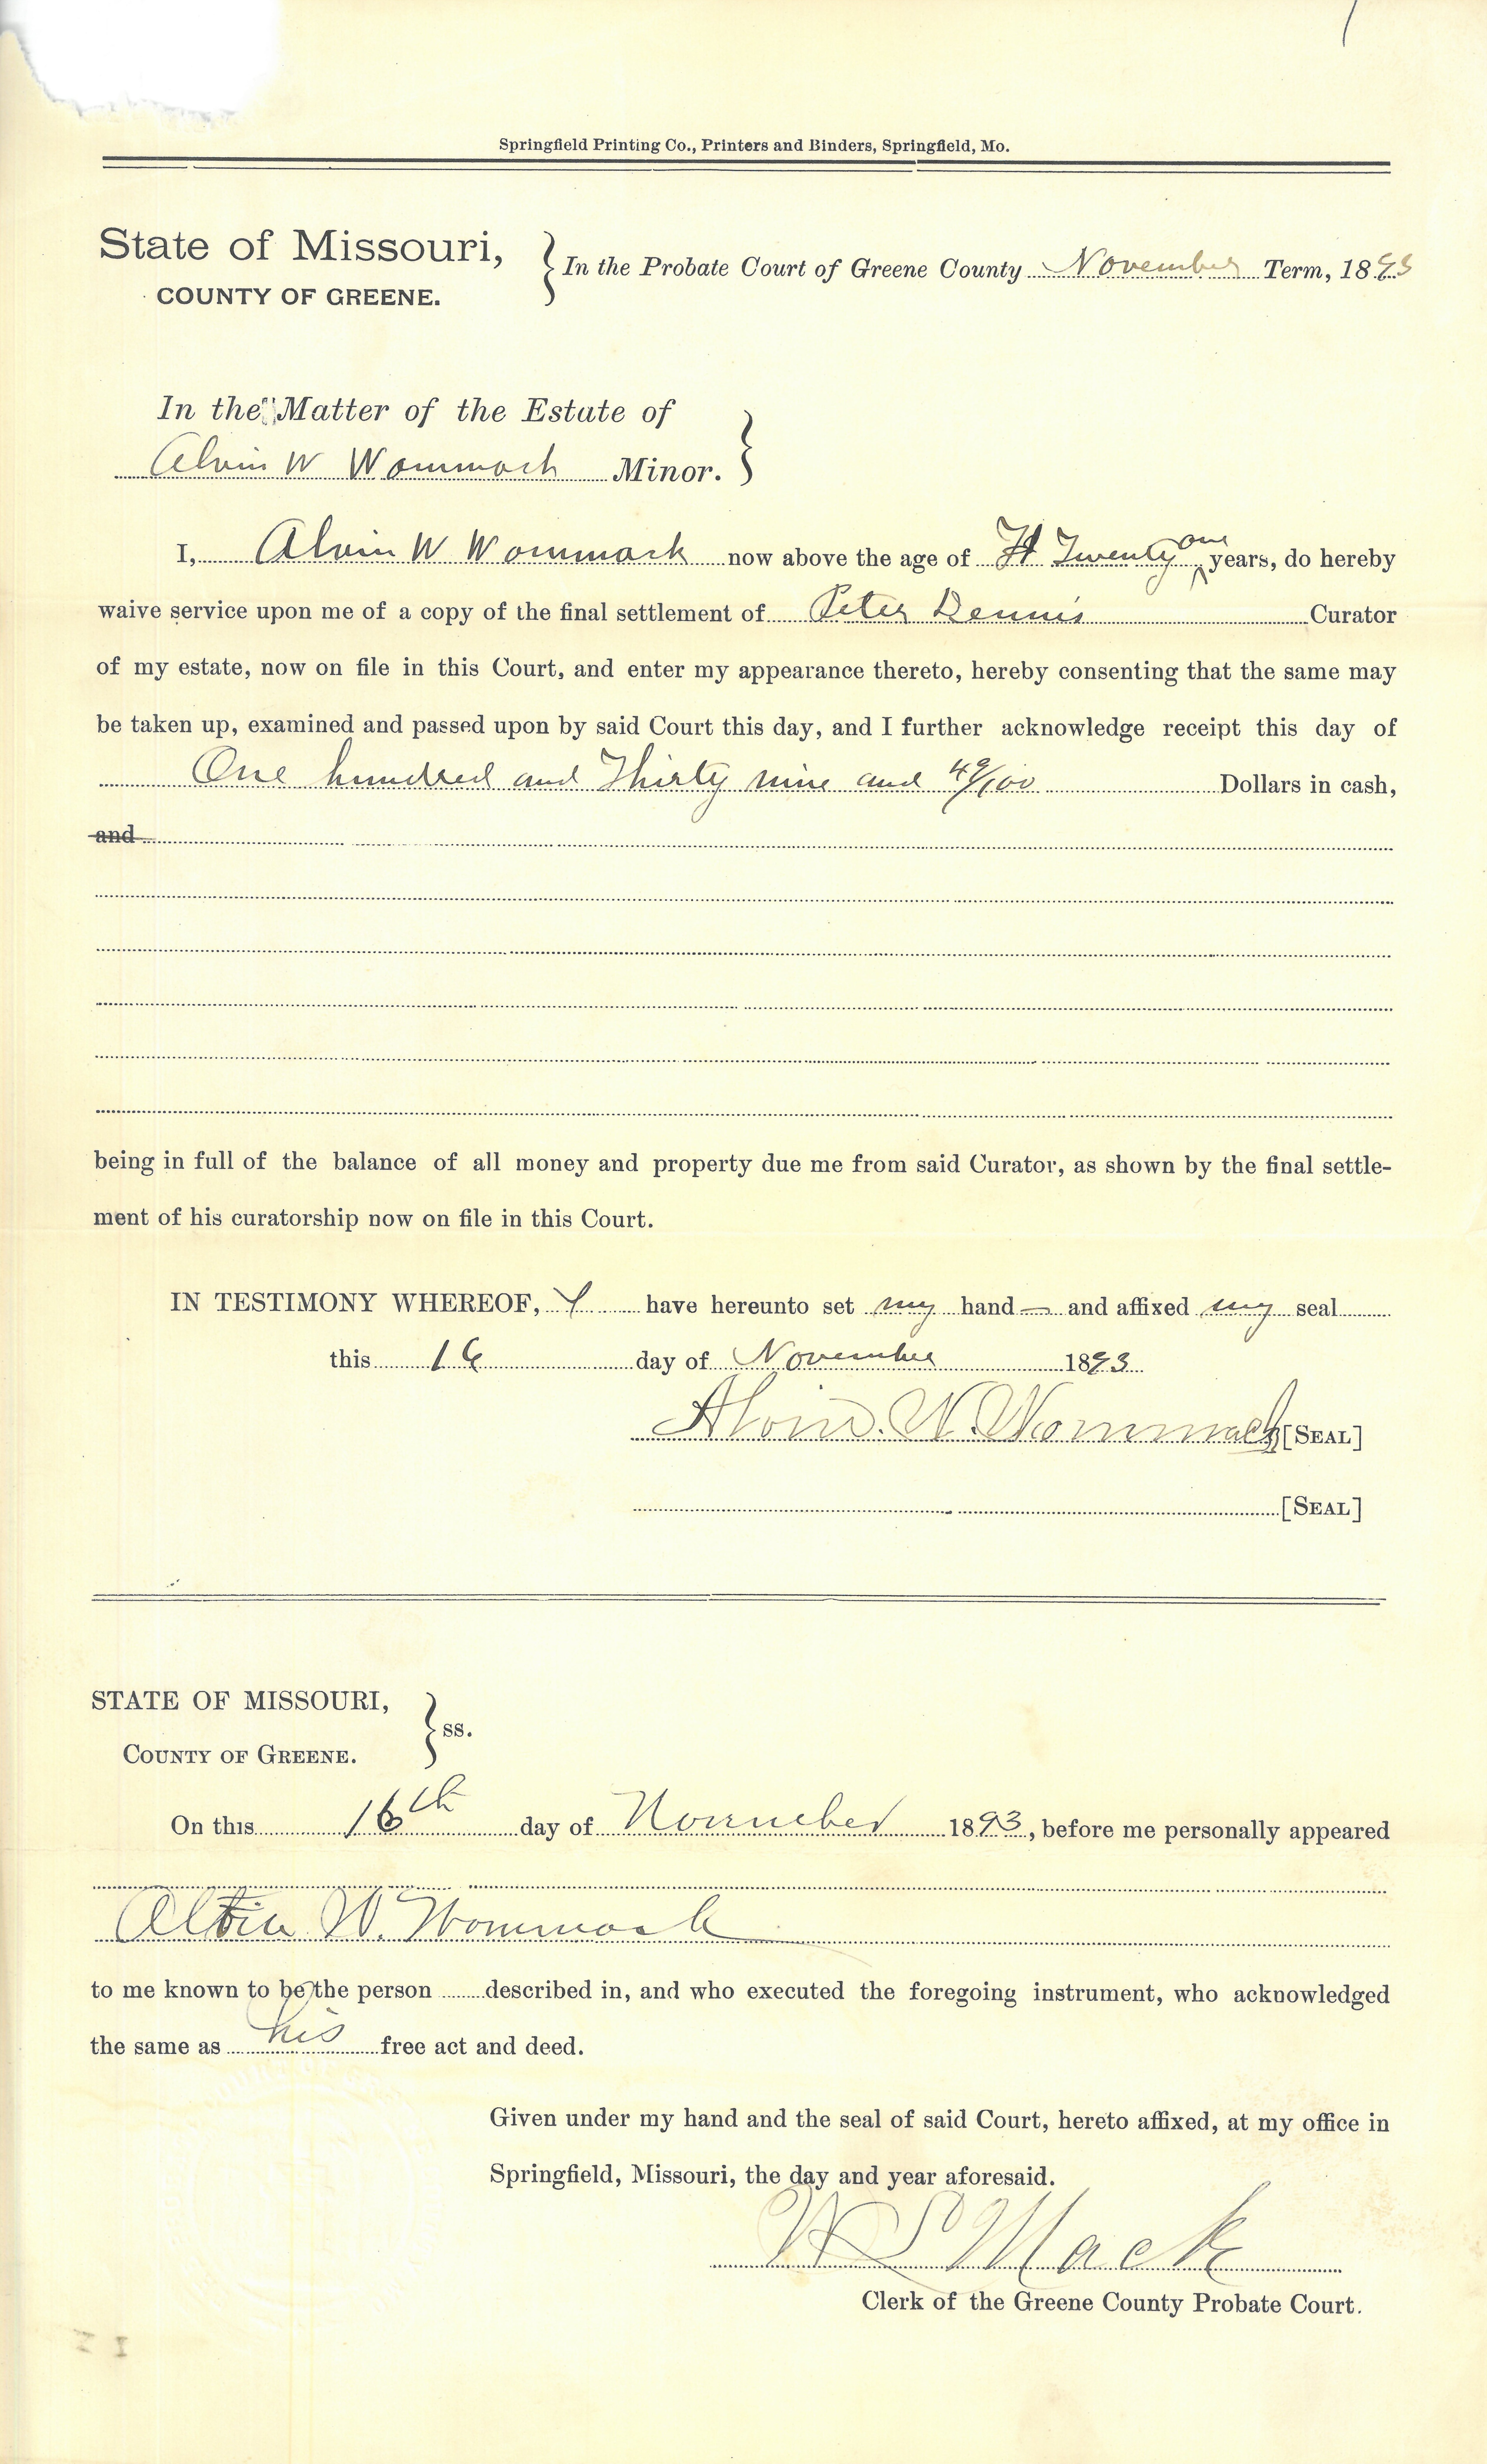 Springfield Printing Co., Printers and Binders, Springfield, Mo.
State of Missouri,
COUNTY OF GREENE.
In the Probate Court of Greene County November Term, 1893
In the Matter of the Estate of
Alvin W Wommack Minor.
I, Alvin W Wommack now above the age of Twenty one years, do hereby
waive service upon me of a copy of the final settlement of Peter Dennis Curator
of my estate, now on file in this Court, and enter my appearance thereto, hereby consenting that the same may
be taken up, examined and passed upon by said Court this day, and I further acknowledge receipt this day of
One hundred and Thirty nine and 49/100 Dollars in cash,
and
being in full of the balance of all money and property due me from said Curator, as shown by the final settle-
ment of his curatorship now on file in this Court.
IN TESTIMONY WHEREOF, I have hereunto set my hand — and affixed my seal
this 16 day of November 1893
Alvin. W. Wommack [SEAL]
[SEAL]
STATE OF MISSOURI,
COUNTY OF GREENE.
ss.
On this 16th day of November 1893, before me personally appeared
Alvin W. Wommack
to me known to be the person described in, and who executed the foregoing instrument, who acknowledged
the same as his free act and deed.
Given under my hand and the seal of said Court, hereto affixed, at my office in
Springfield, Missouri, the day and year aforesaid.
W S Mack
Clerk of the Greene County Probate Court.